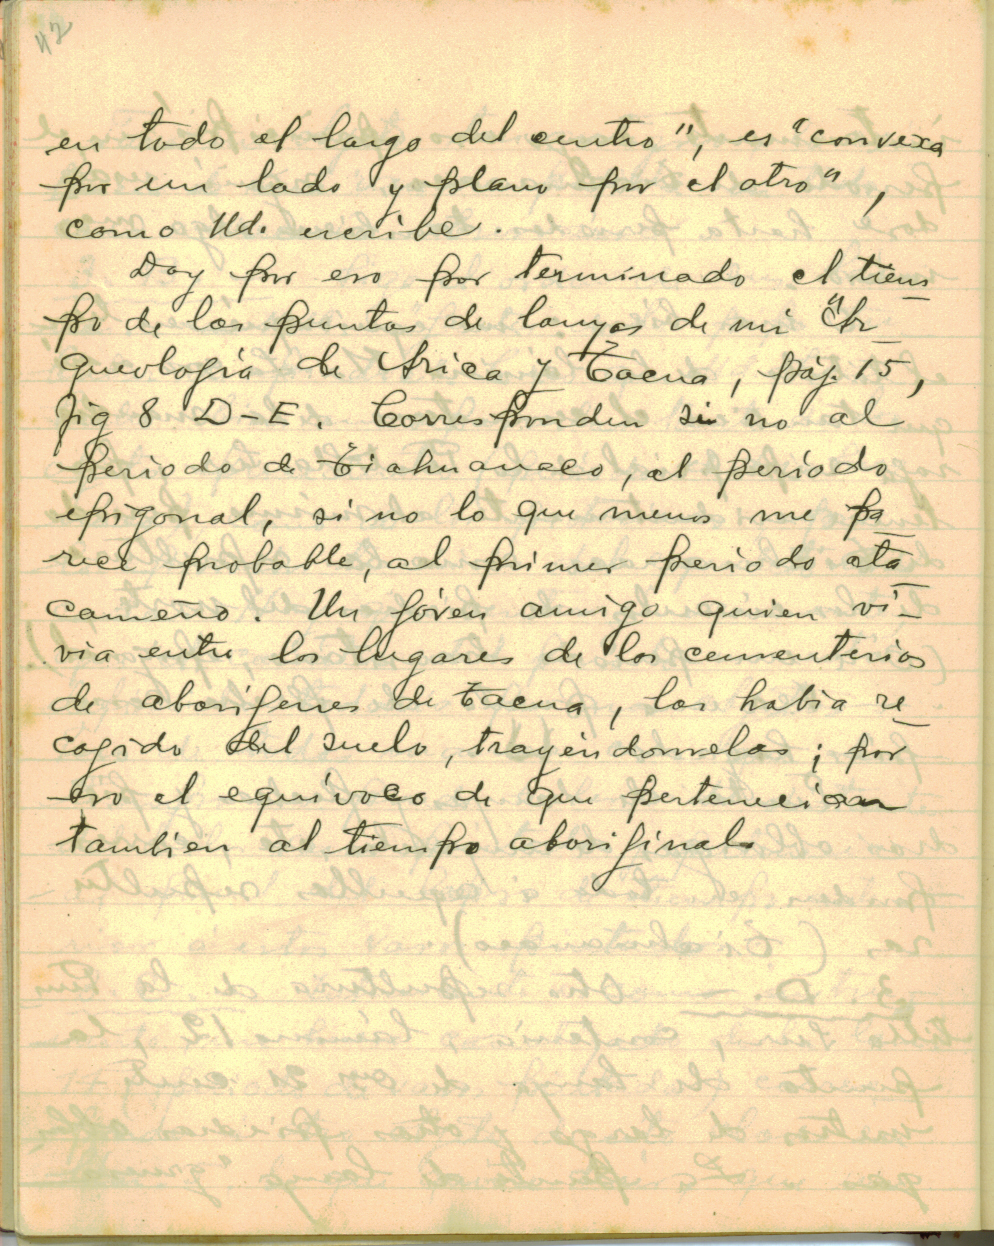 42
en todo el largo del centro", es "convexa
por un lado y plano por el otro",
como Ud. escribe.
Doy por eso por terminado el tiem
po de las puntas de lanzas de mi "Ar
queología de Arica y Tacna, páj. 15,
fig 8 D-E. Corresponden si no al
período de Tiahuanaco, al período
epigonal, si no lo que menos me pa
rece probable, al primer período ata
cameño. Un jóven amigo quien vi-
via entre los lugares de los cementerios
de aborígenes de Tacna, las habia re
cogido del suelo, trayéndomelas; por
eso el equívoco de que pertenecian
tambien al tiempo aboriginal.